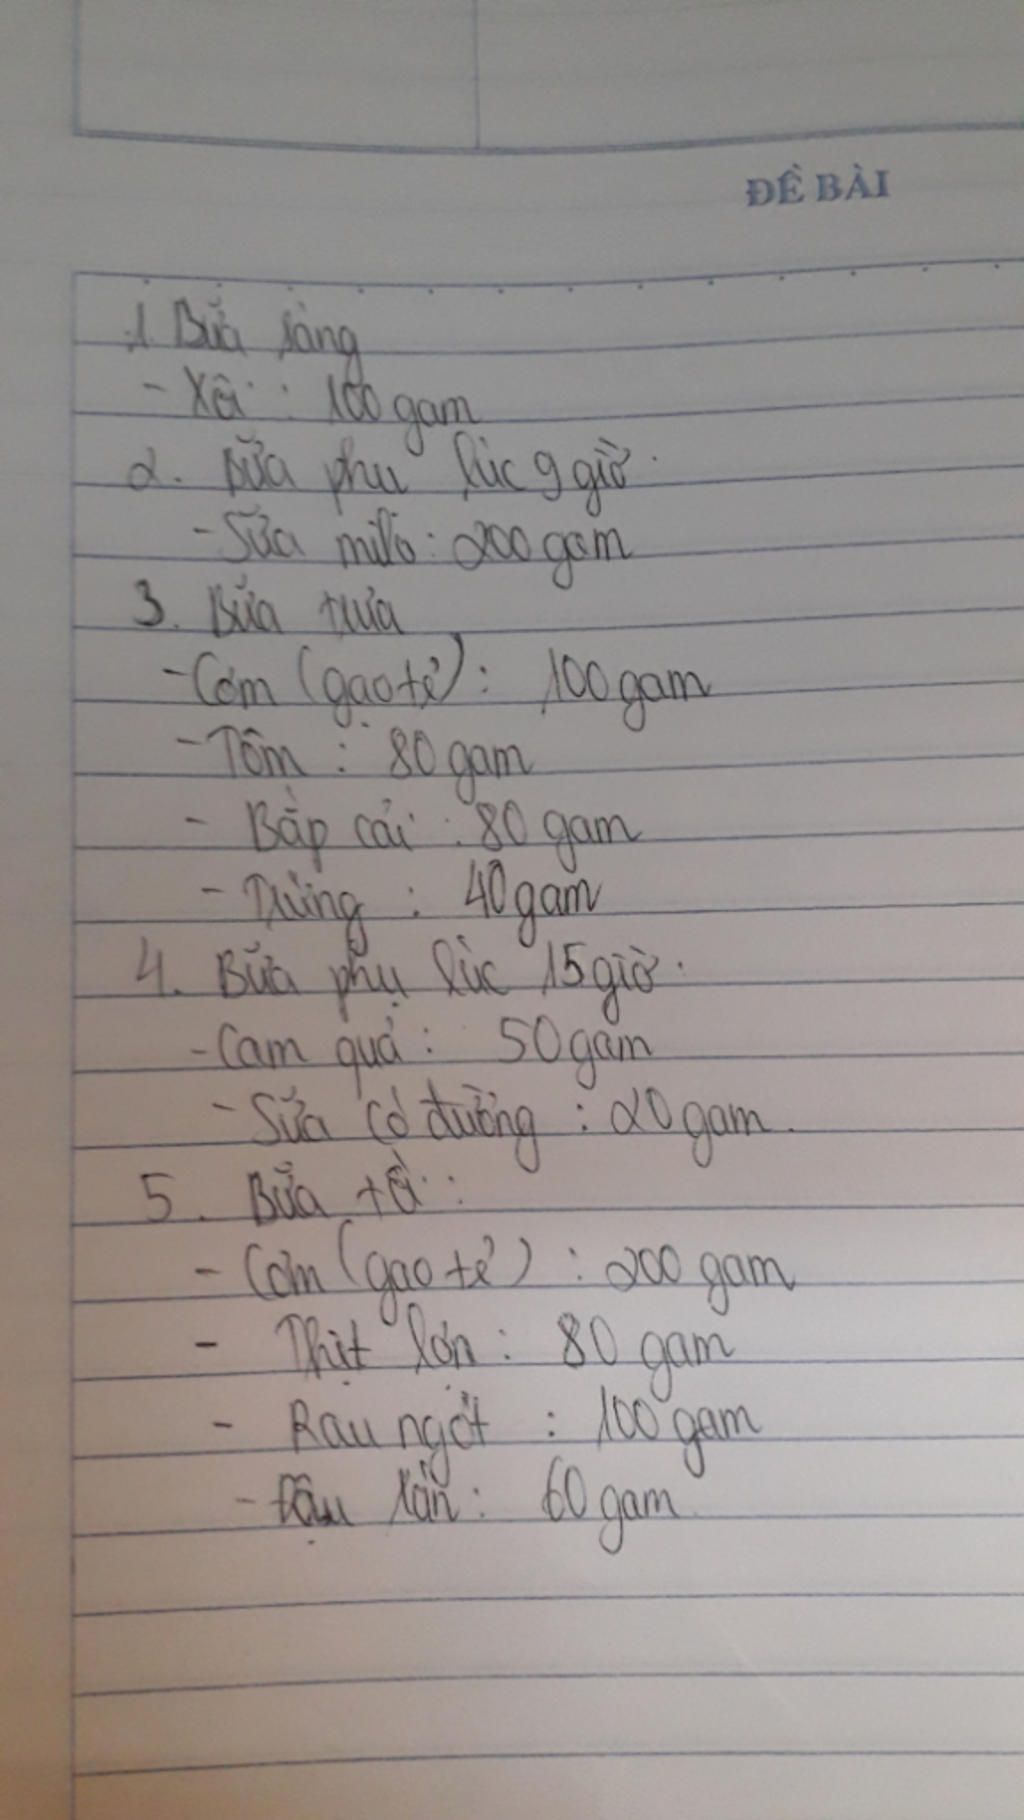 ĐỀ BÀI
1. Bữa sáng
- Xôi : 100 gam
2. Bữa phụ lúc 9 giờ.
- Sữa milo : 200 gam
3. Bữa trưa
- Cơm (gạo tẻ) : 100 gam
- Tôm : 80 gam
- Bắp cải : 80 gam
- Trứng : 40 gam
4. Bữa phụ lúc 15 giờ.
- Cam quả : 50 gam
- Sữa có đường : 20 gam.
5. Bữa tối :
- Cơm (gạo tẻ) : 200 gam
- Thịt lợn : 80 gam
- Rau ngót : 100 gam
- Đậu rán : 60 gam.